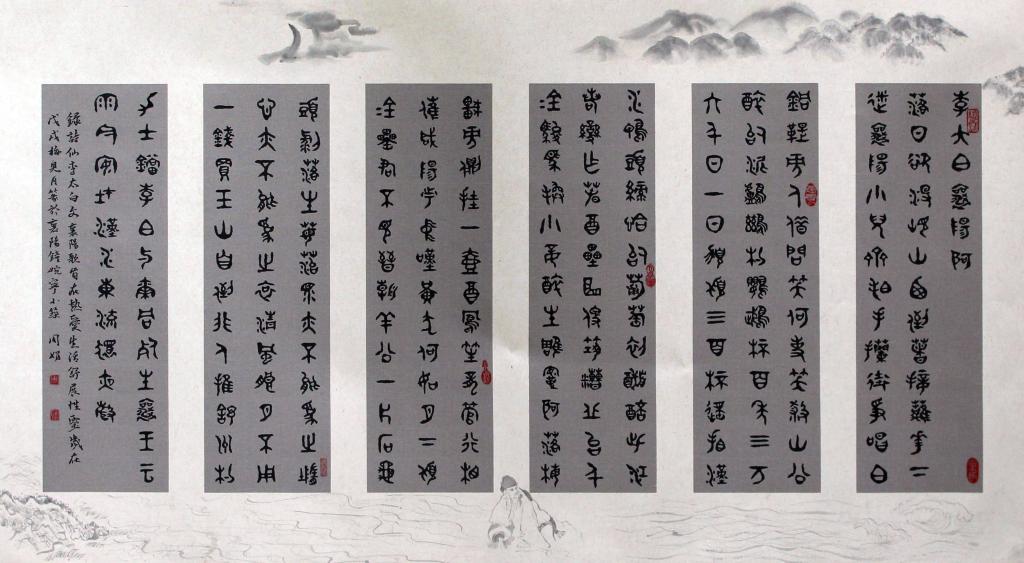 李太白襄陽歌
落日欲沒峴山西倒著接蘺花下
迷襄陽小兒齊拍手攔街爭唱白
銅鞮旁人借問笑何事笑殺山公
醉似泥鸕鶿杓鸚鵡杯百年三萬
六千日一日須傾三百杯遙看漢
水鴨頭綠恰似葡萄初醱醅此江
若變作春酒壘麴便築糟丘臺千
金駿馬換小妾醉坐雕鞍歌落梅
車旁側挂一壺酒鳳笙龍管行相
催咸陽市中嘆黃犬何如月下傾
金罍君不見晉朝羊公一片石龜
頭剝落生莓苔淚亦不能為之墮
心亦不能為之哀清風朗月不用
一錢買玉山自倒非人推舒州杓
力士鐺李白與爾同死生襄王雲
雨今安在江水東流猿夜聲
錄詩仙李太白文襄陽歌旨在熱愛生活舒展性靈歲在
戊戌梅見月書於襄陽鐘婉寧小築 周媚